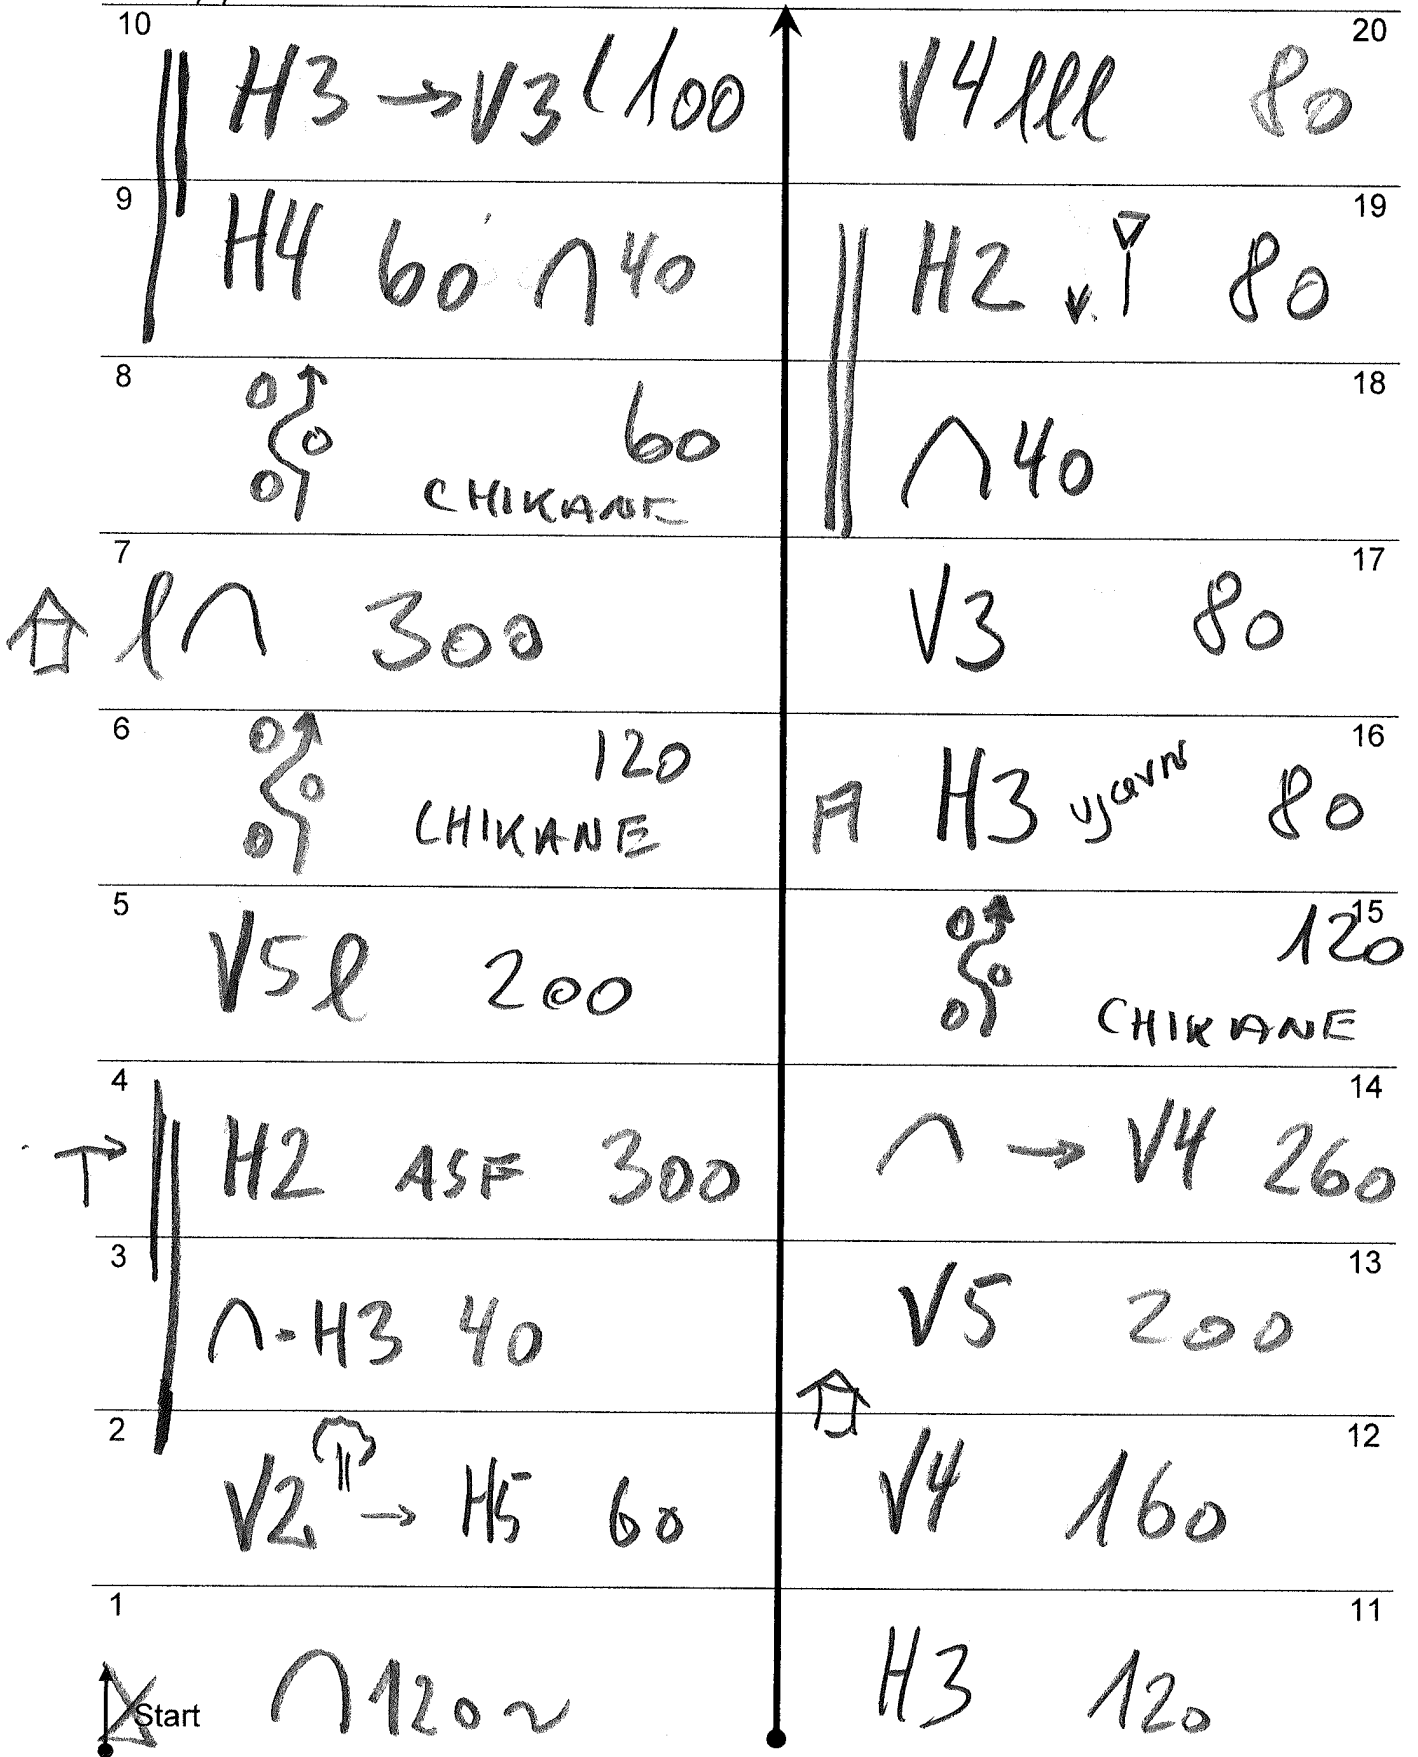 10
H3 → V3 l 100
9
H4 60 ∩ 40
8
60
CHIKANE
7
l ∩ 300
6
120
CHIKANE
5
V5 l 200
4
H2 ASF 300
3
∩ - H3 40
2
V2 → H5 60
1
Start ∩ 120 ~
20
V4 lll 80
19
H2 80
18
∩ 40
17
V3 80
16
H3 ujævn 80
15
120
CHIKANE
14
∩ → V4 260
13
V5 200
12
V4 160
11
H3 120